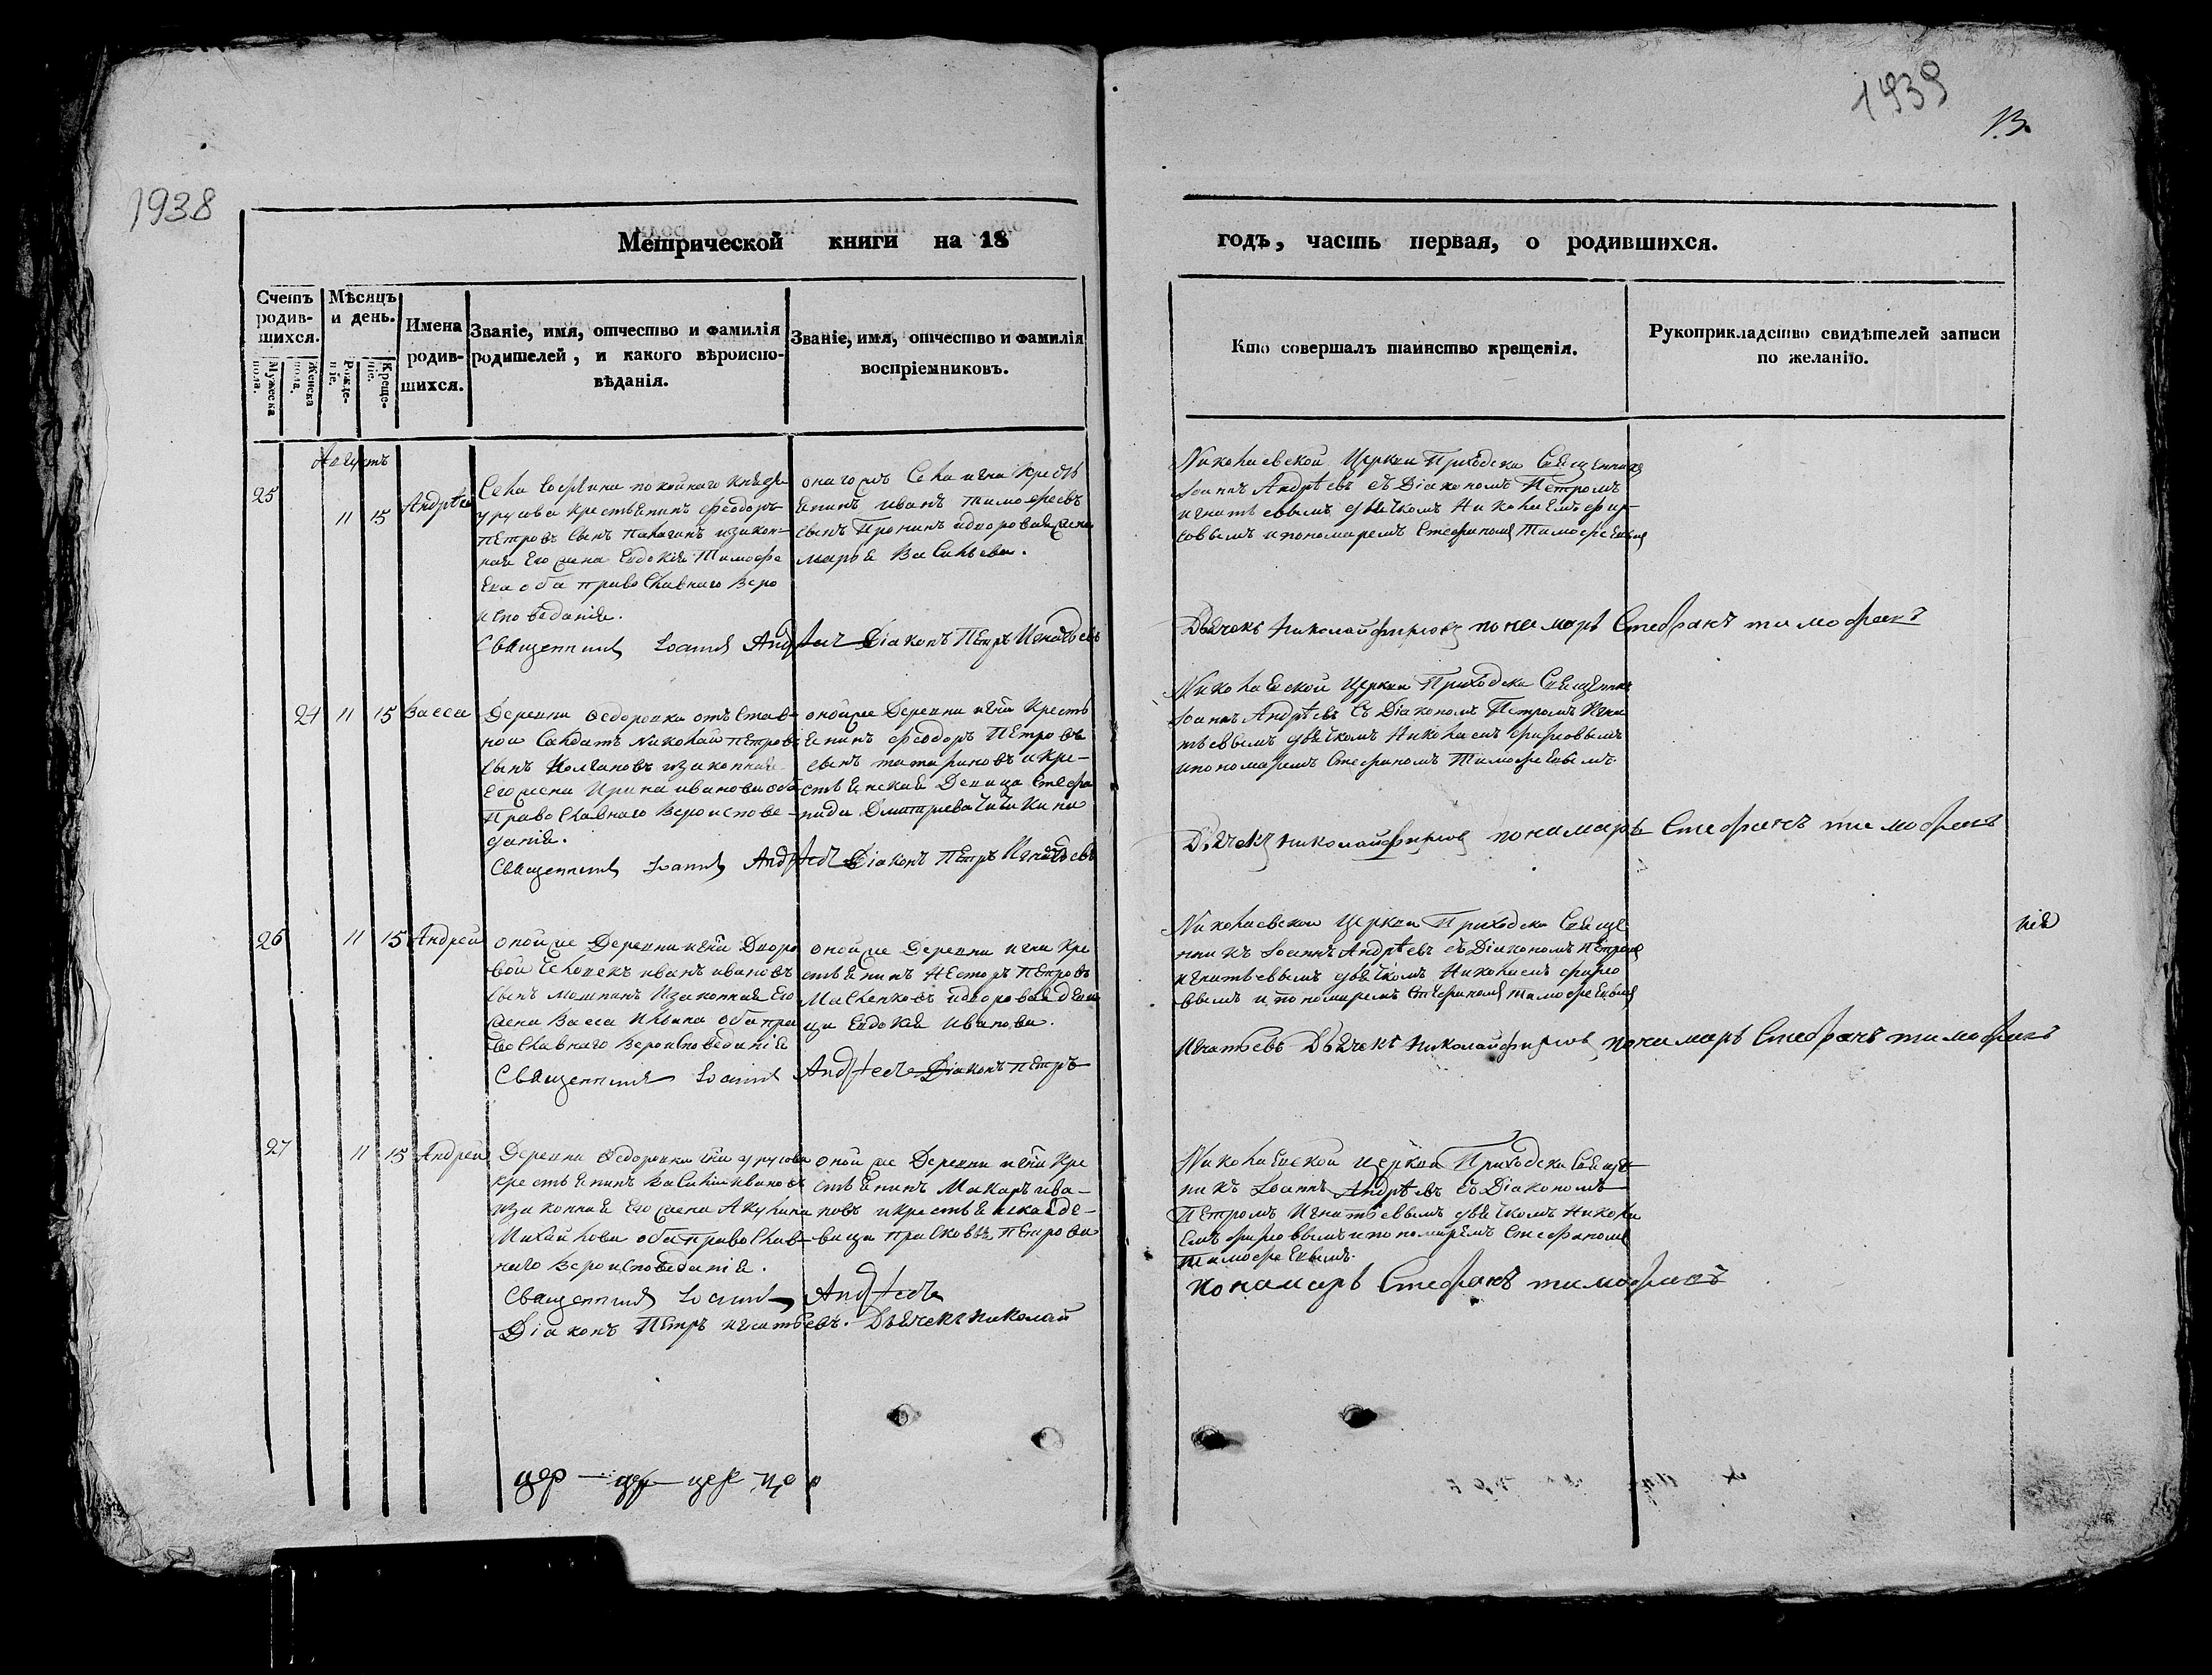 1939
13.
1938
Метрической книги на 18
годъ, часть первая, о родившихся.
Счетъ родив-шихся.
Мужеска пола.
Женска пола.
Мѣсяцъ и день.
Рожде-ніе.
Креще-ніе.
Имена родив-шихся.
Званіе, имя, отчество и фамилія родителей, и какого вѣроиспо-вѣданія.
Званіе, имя, отчество и фамилія воспріемниковъ.
Кто совершалъ таинство крещенія.
Рукоприкладство свидѣтелей записи по желанію.
Августъ
25
11 15
Андрѣй
Села покойнаго Князя
урусова крестьенинъ Феодоръ
Петровъ сынъ изакон-
ная его жена Евдокія Тимофе
ева оба православнаго веро
исповѣданія.
Священникъ Іоаннъ Андрѣевъ Діаконъ Петръ Игнатьевъ
онагожъ Села кресть
енинъ иванъ тимофеевъ
сынъ Пронинъ идворовая жена
марѳа Васильева.
Николаевской Церкви Приходска Священникъ
Іоаннъ Андрѣевъ съ Діакономъ Петромъ
игнатьевымъ дьячкомъ Николаемъ фир-
совымъ ипономаремъ Стефаномъ Тимофеевымъ
Дьячекъ Николай фирсовъ понамарь Стефанъ тимофеевъ
24 11 15 Васса
Деревни Ѳедоровки отъстав-
ной Салдатъ Николай Петровъ
сынъ изаконная
его жена Ирина иванова оба
Православнаго Вероиспове-
данія.
Священникъ Іоаннъ Андрѣевъ Діаконъ Петръ Игнатьевъ
онойже Деревни кресть
енинъ феодоръ Петровъ
сынъ татариновъ икре-
стьенская Девица Стефа
нида Дмитриева
Николаевской Церкви Приходска Священникъ
Іоаннъ Андрѣевъ Съ Діакономъ Петромъ Игна
тьевымъ дьячкомъ Николаемъ фирсовымъ
ипономаремъ Стефаномъ Тимофеевымъ.
Дьячекъ Николай фирсовъ понамарь Стефанъ тимофеевъ
26 11 15 Андрей
онойже Деревни Дворо
вой человекъ иванъ ивановъ
сынъ изаконная его
жена Васса Ильина оба пра
вославнаго Вероисповеданія
Священникъ Іоаннъ Андрѣевъ Діаконъ Петръ
онойже Деревни кре
стьенинъ Несторъ Петровъ
идворовая деви
ца Евдокія Иванова.
Николаевской Церкви Приходска Свяще
нникъ Іоаннъ Андрѣевъ съ Діакономъ Петромъ
игнатьевымъ дьячкомъ Николаемъ фирсо
вымъ и пономаремъ Стефаномъ тимофеевымъ
Игнатьевъ Дьячекъ Николай фирсовъ понамарь Стефанъ тимофеевъ
27 11 15 Андрей
Деревни Ѳедоровки урусова
крестьенинъ Василій Ивановъ
изаконная его жена Акулина
Михайлова оба православ-
наго Вероисповеданія.
Священникъ Іоаннъ Андрѣевъ
Діаконъ Петръ игнатьевъ. Дьячекъ Николай
онойже Деревни кре
стьенинъ Макаръ ива-
новъ икрестьенская де-
вица Прасковья Петрова
Николаевской Церкви Приходска Священ
никъ Іоаннъ Андрѣевъ съ Діакономъ
Петромъ Игнатьевымъ дьячкомъ Никола
емъ фирсовымъ ипономаремъ Стефаномъ
тимофеевымъ.
понамарь Стефанъ тимофеевъ